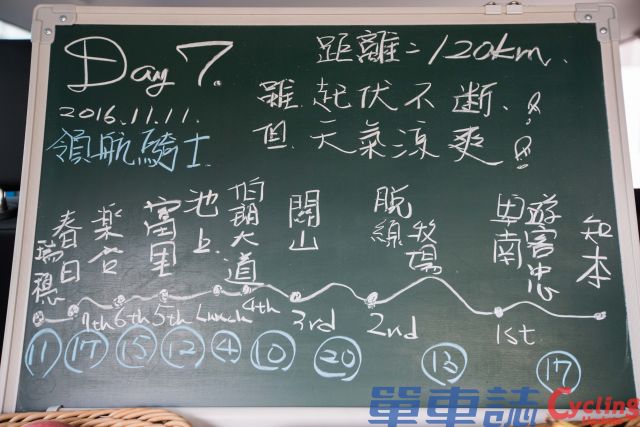 Day 7.
距離=120km.
2016.11.11.
雖 起伏不斷、
領航騎士
但 天氣涼爽
瑞穗 春日 樂合 富里 池上 伯朗大道 關山 脫線牧場 卑南遊客中心 知本
7th 6th 5th Lunch 4th 3rd 2nd 1st
11 17 15 12 4 10 20 13 17
單車誌 Cycling